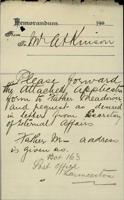 Memorandum
190
From
To Mr Atkinson
Please forward
the attached applicatn
form to Father Sheadron
and request as desired
in letter from Secretary
External Affairs
Father M— address
is given as.
Box 163
Post Office
Launceston